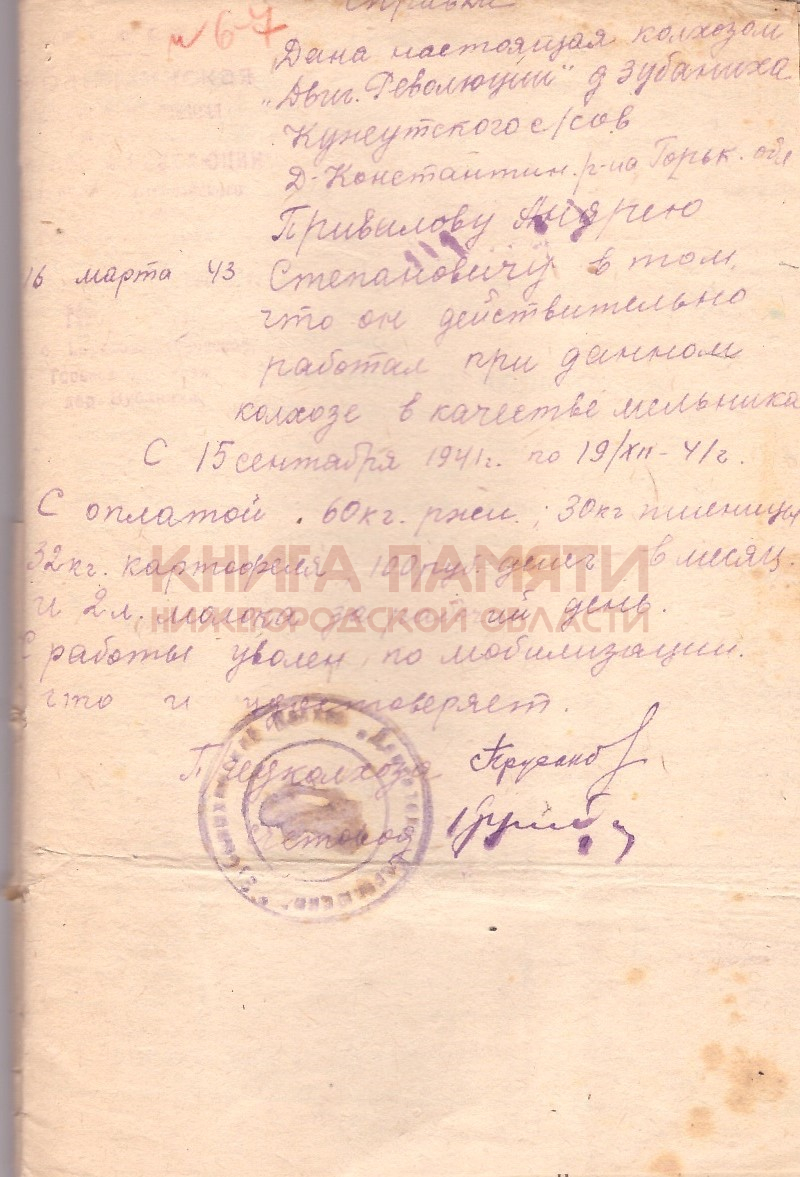 Справка
№ 67
Дана настоящая колхозом
"Двиг. Революции" д Зубаниха
Кужутского с/сов
Д-Константин. р-на Горьк. обл
Привалову Андрею
16 марта 43 Степановичу в том,
что он действительно
работал при данном
колхозе в качестве мельника
С 15 сентября 1941г. по 19/XII-41г.
С оплатой . 60кг. ржи.; 30кг пшеницы
32кг. картофеля 100 руб. денег в месяц.
и 2л. молока за рабочий день.
С работы уволен по мобилизации.
что и удостоверяет.
Предколхоза
Счетовод
КНИГА ПАМЯТИ
НИЖЕГОРОДСКОЙ ОБЛАСТИ